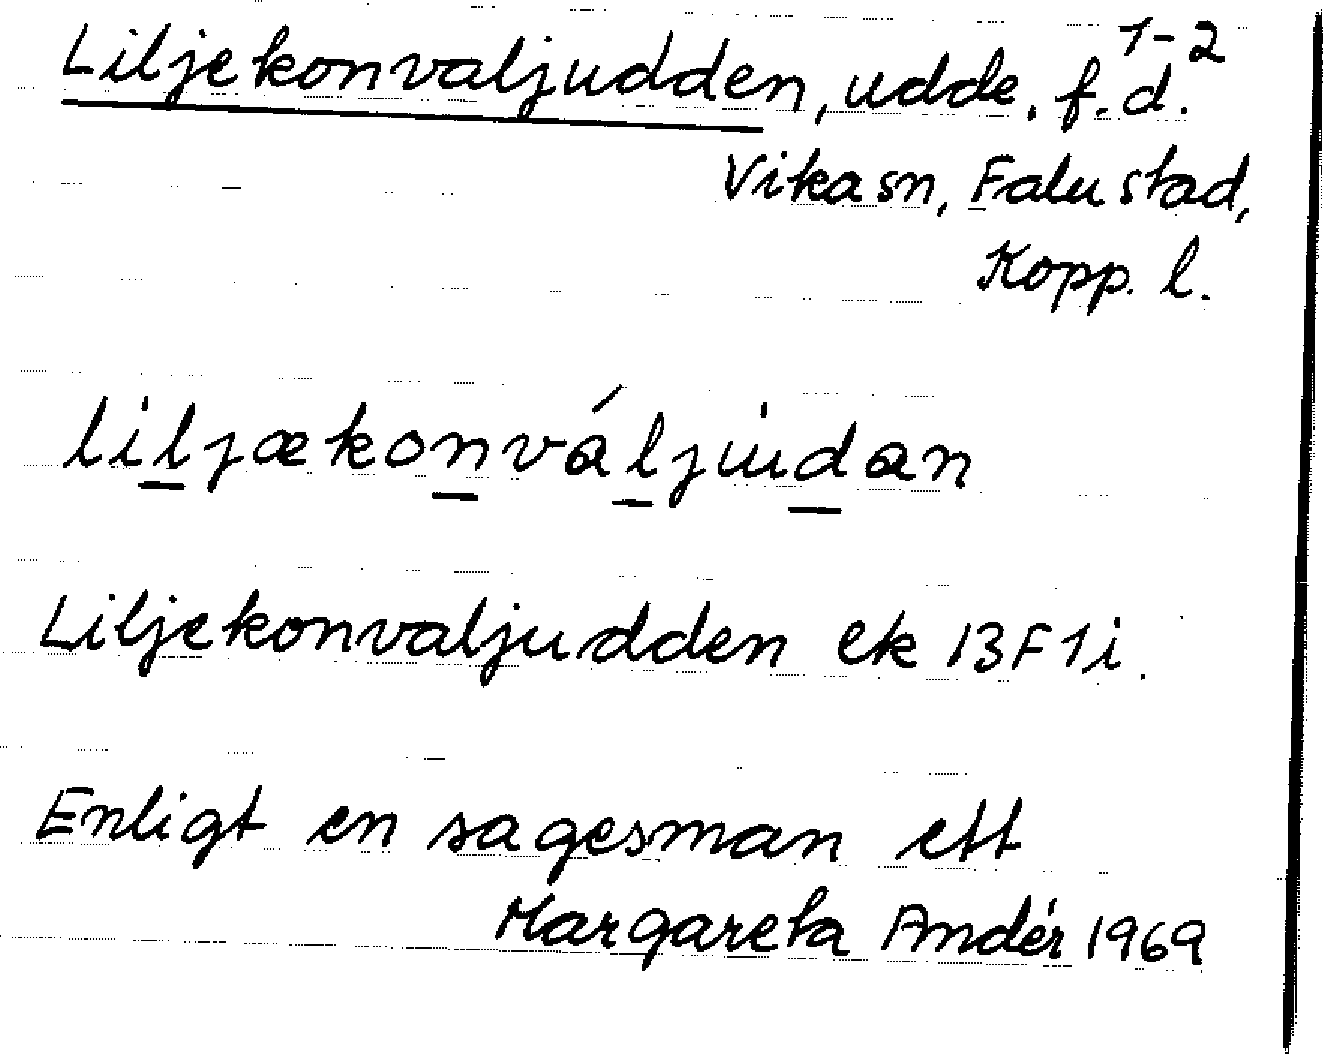 Liljekonvaljudden, udde. f.d. 1-2
Vika sn, Falu stad,
Kopp. l.
liljækonváljuidan
Liljekonvaljudden ek 13F1i.
Enligt en sagesman ett
Margareta Andér 1969